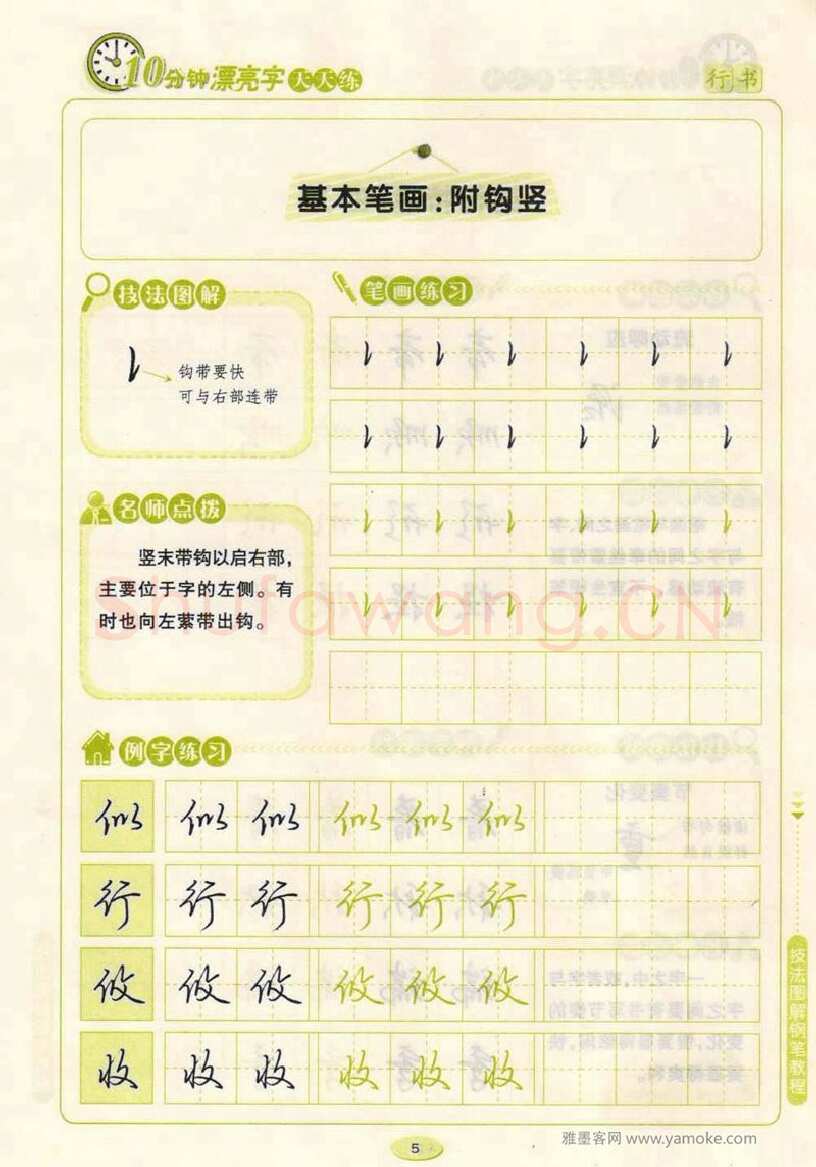 10分钟漂亮字天天练
行书
基本笔画：附钩竖
技法图解
钩带要快
可与右部连带
笔画练习
名师点拨
竖末带钩以启右部，
主要位于字的左侧。有
时也向左萦带出钩。
shufawang.CN
例字练习
似 似 似 似 似 似
行 行 行 行 行 行
攸 攸 攸 攸 攸 攸
收 收 收 收 收 收
技法图解钢笔教程
5
雅墨客网 www.yamoke.com